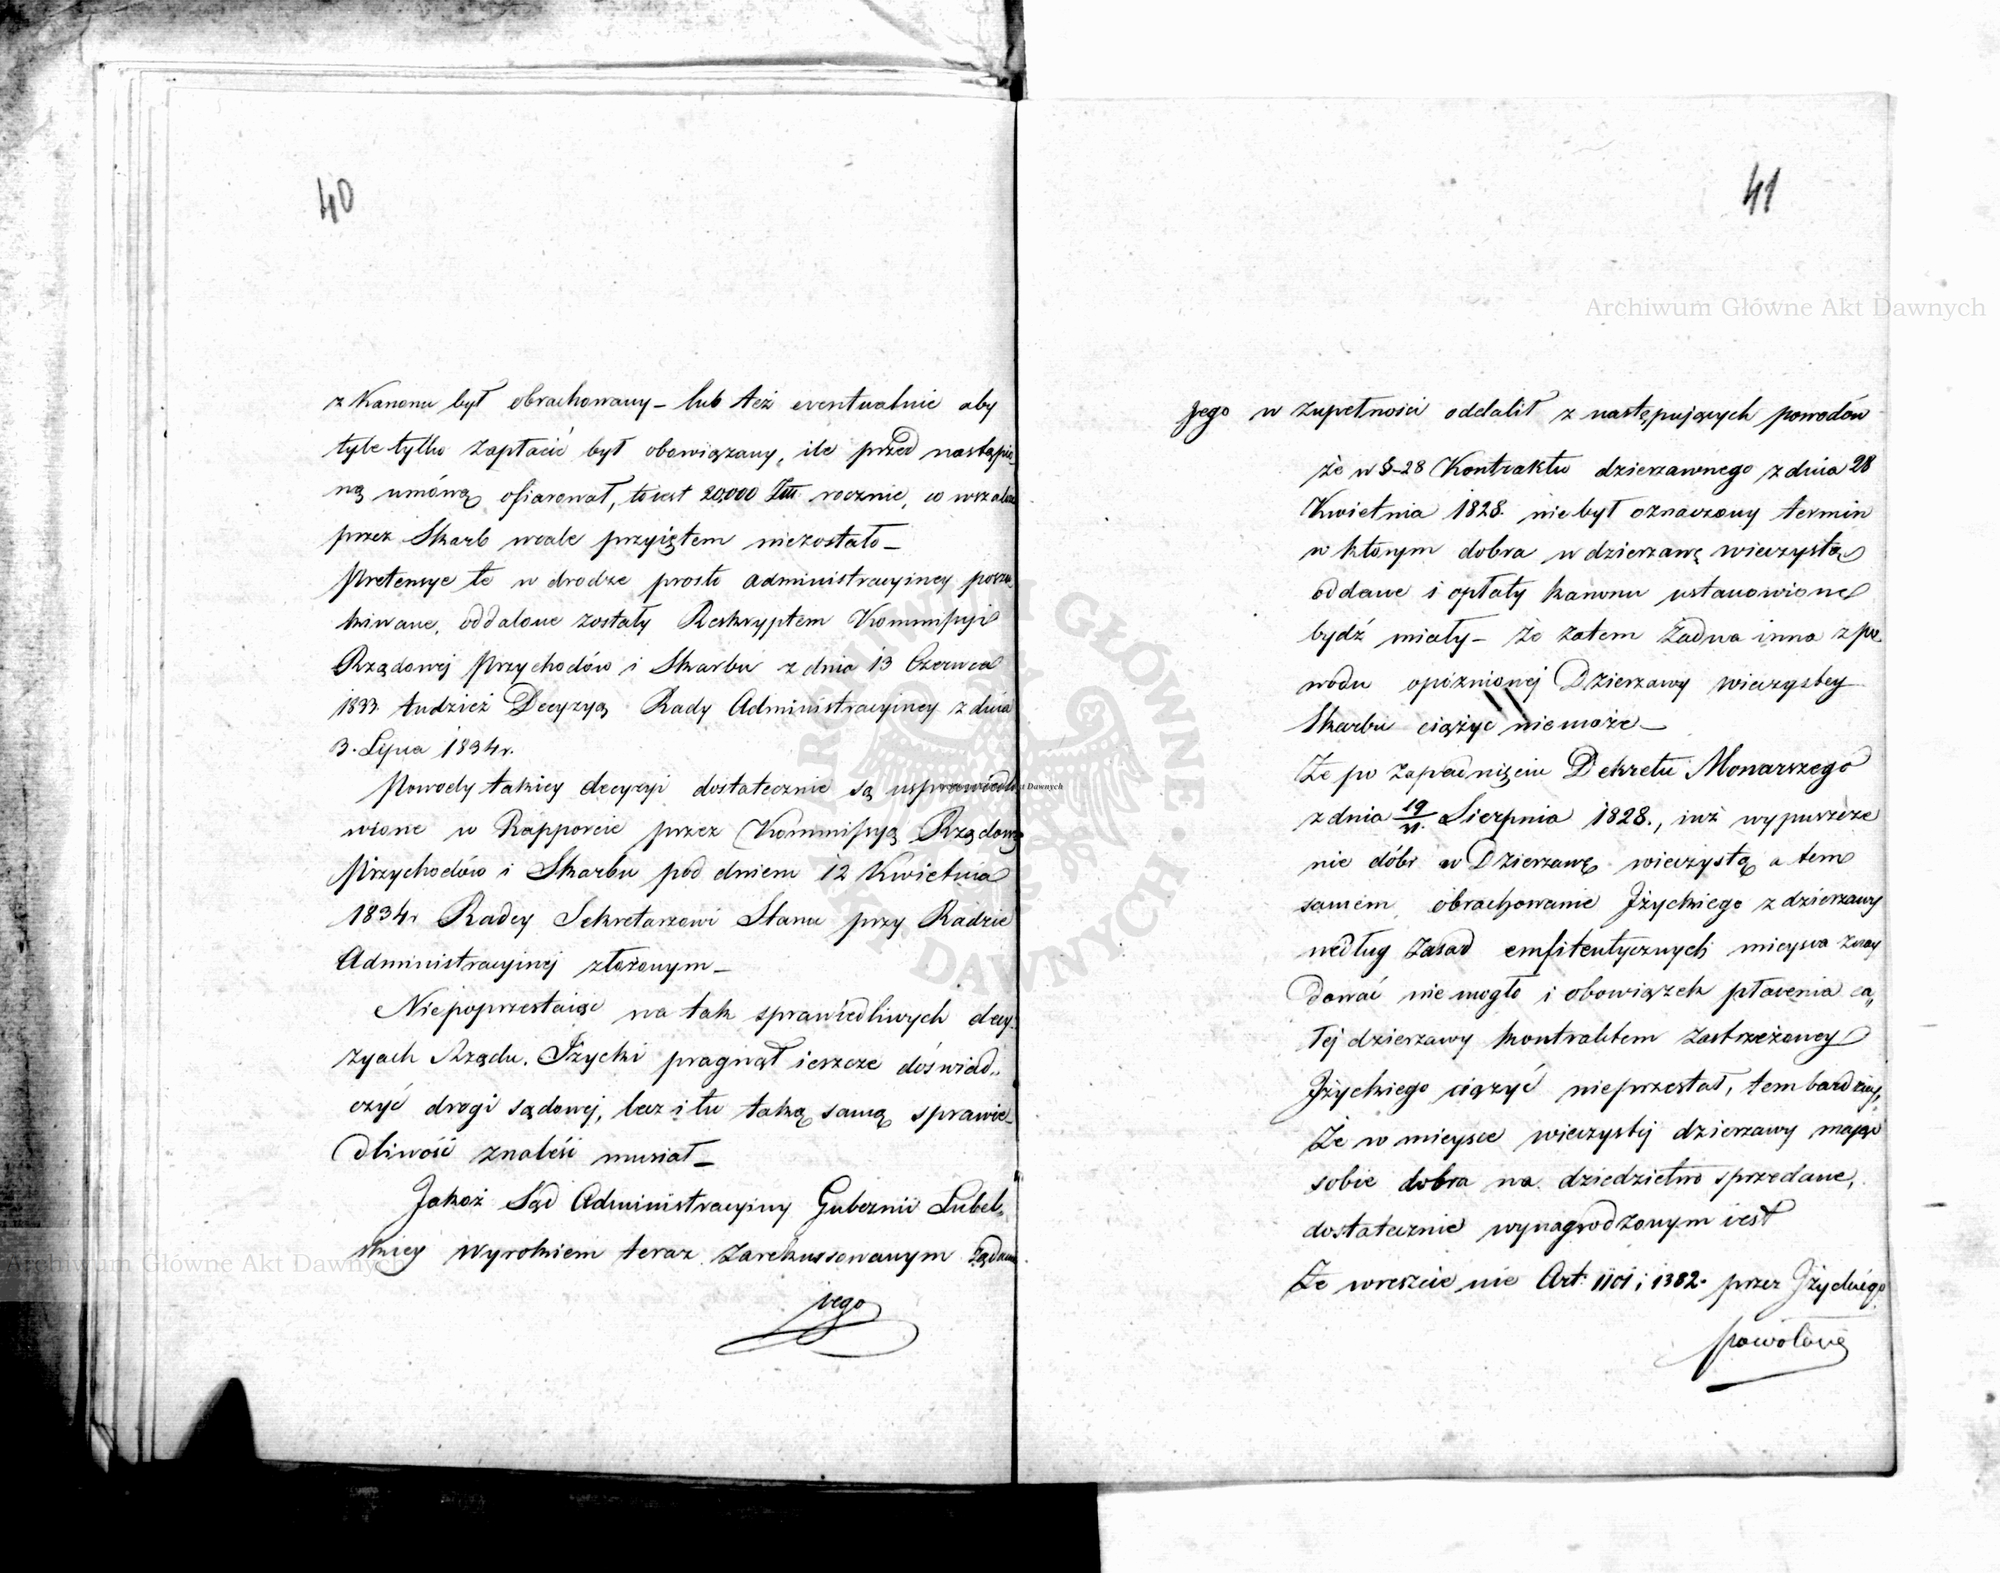 40
z Kanonu był obrachowany – lub też eventualnie aby
tyle tylko zapłacić był obowiązany, ile przed nastąpio-
ną umową ofiarował, to iest 20,000 rocznie, co wszakże
przez Skarb wcale przyiętem niezostało –
Pretensye te w drodze prosto administracyiney poszu-
kiwane, oddalone zostały Reskryptem Kommissyi
Rządowej Przychodów i Skarbu z dnia 13 Czerwca
1833. tudzież Decyzyą Rady Administracyiney z dnia
3. Lipca 1834r.
Powody takiey decyzyi dostatecznie są usprawiedli
wione w Rapporcie przez Kommissyą Rządową
Przychodów i Skarbu pod dniem 12 Kwietnia
1834r Radcy Sekretarzowi Stanu przy Radzie
Administracyinej złożonym –
Niepoprzestaiąc na tak sprawiedliwych decy-
zyach Rządu, Iżycki pragnął ieszcze doświad-
czyć drogi sądowej, lecz i tu taką samą sprawie-
dliwość znaleść musiał –
Jakoż Sąd Administracyiny Gubernii Lubel-
skiey wyrokiem teraz zarekussowanym żądanie
jego
41
jego w zupełności oddalił z następujących powodów
że w § 28 Kontraktu dzierzawnego z dnia 28
Kwietnia 1828. nie był oznaczony termin
w którym dobra w dzierzawę wieczystą
oddane i opłaty kanonu ustanowione
bydź miały – że zatem żadna inna z po-
wodu opóznionej Dzierzawy wieczystey
Skarbu ciążyc niemoże –
Że po zapadnięciu Dekretu Monarszego
z dnia 19/31. Sierpnia 1828., iuż wypuszcze
nie dóbr w Dzierzawę wieczystą a tem
samém obrachowanie Iżyckiego z dzierzawy
według zasad emfiteutycznych mieysca znay
dować nie mogło i obowiązek płacenia ca-
łej dzierzawy kontraktem zastrzeżoney
Iżyckiego ciążyć nieprzestał, tem bardziey,
Że w mieysce wieczystej dzierzawy mając
sobie dobra na dziedzictwo sprzedane,
dostatecznie wynagrodzonym iest
Że wreszcie nie Art: 1101 i 1382. przez Iżyckiego
powołane
Archiwum Główne Akt Dawnych
Archiwum Główne Akt Dawnych
ARCHIWUM GŁÓWNE AKT DAWNYCH